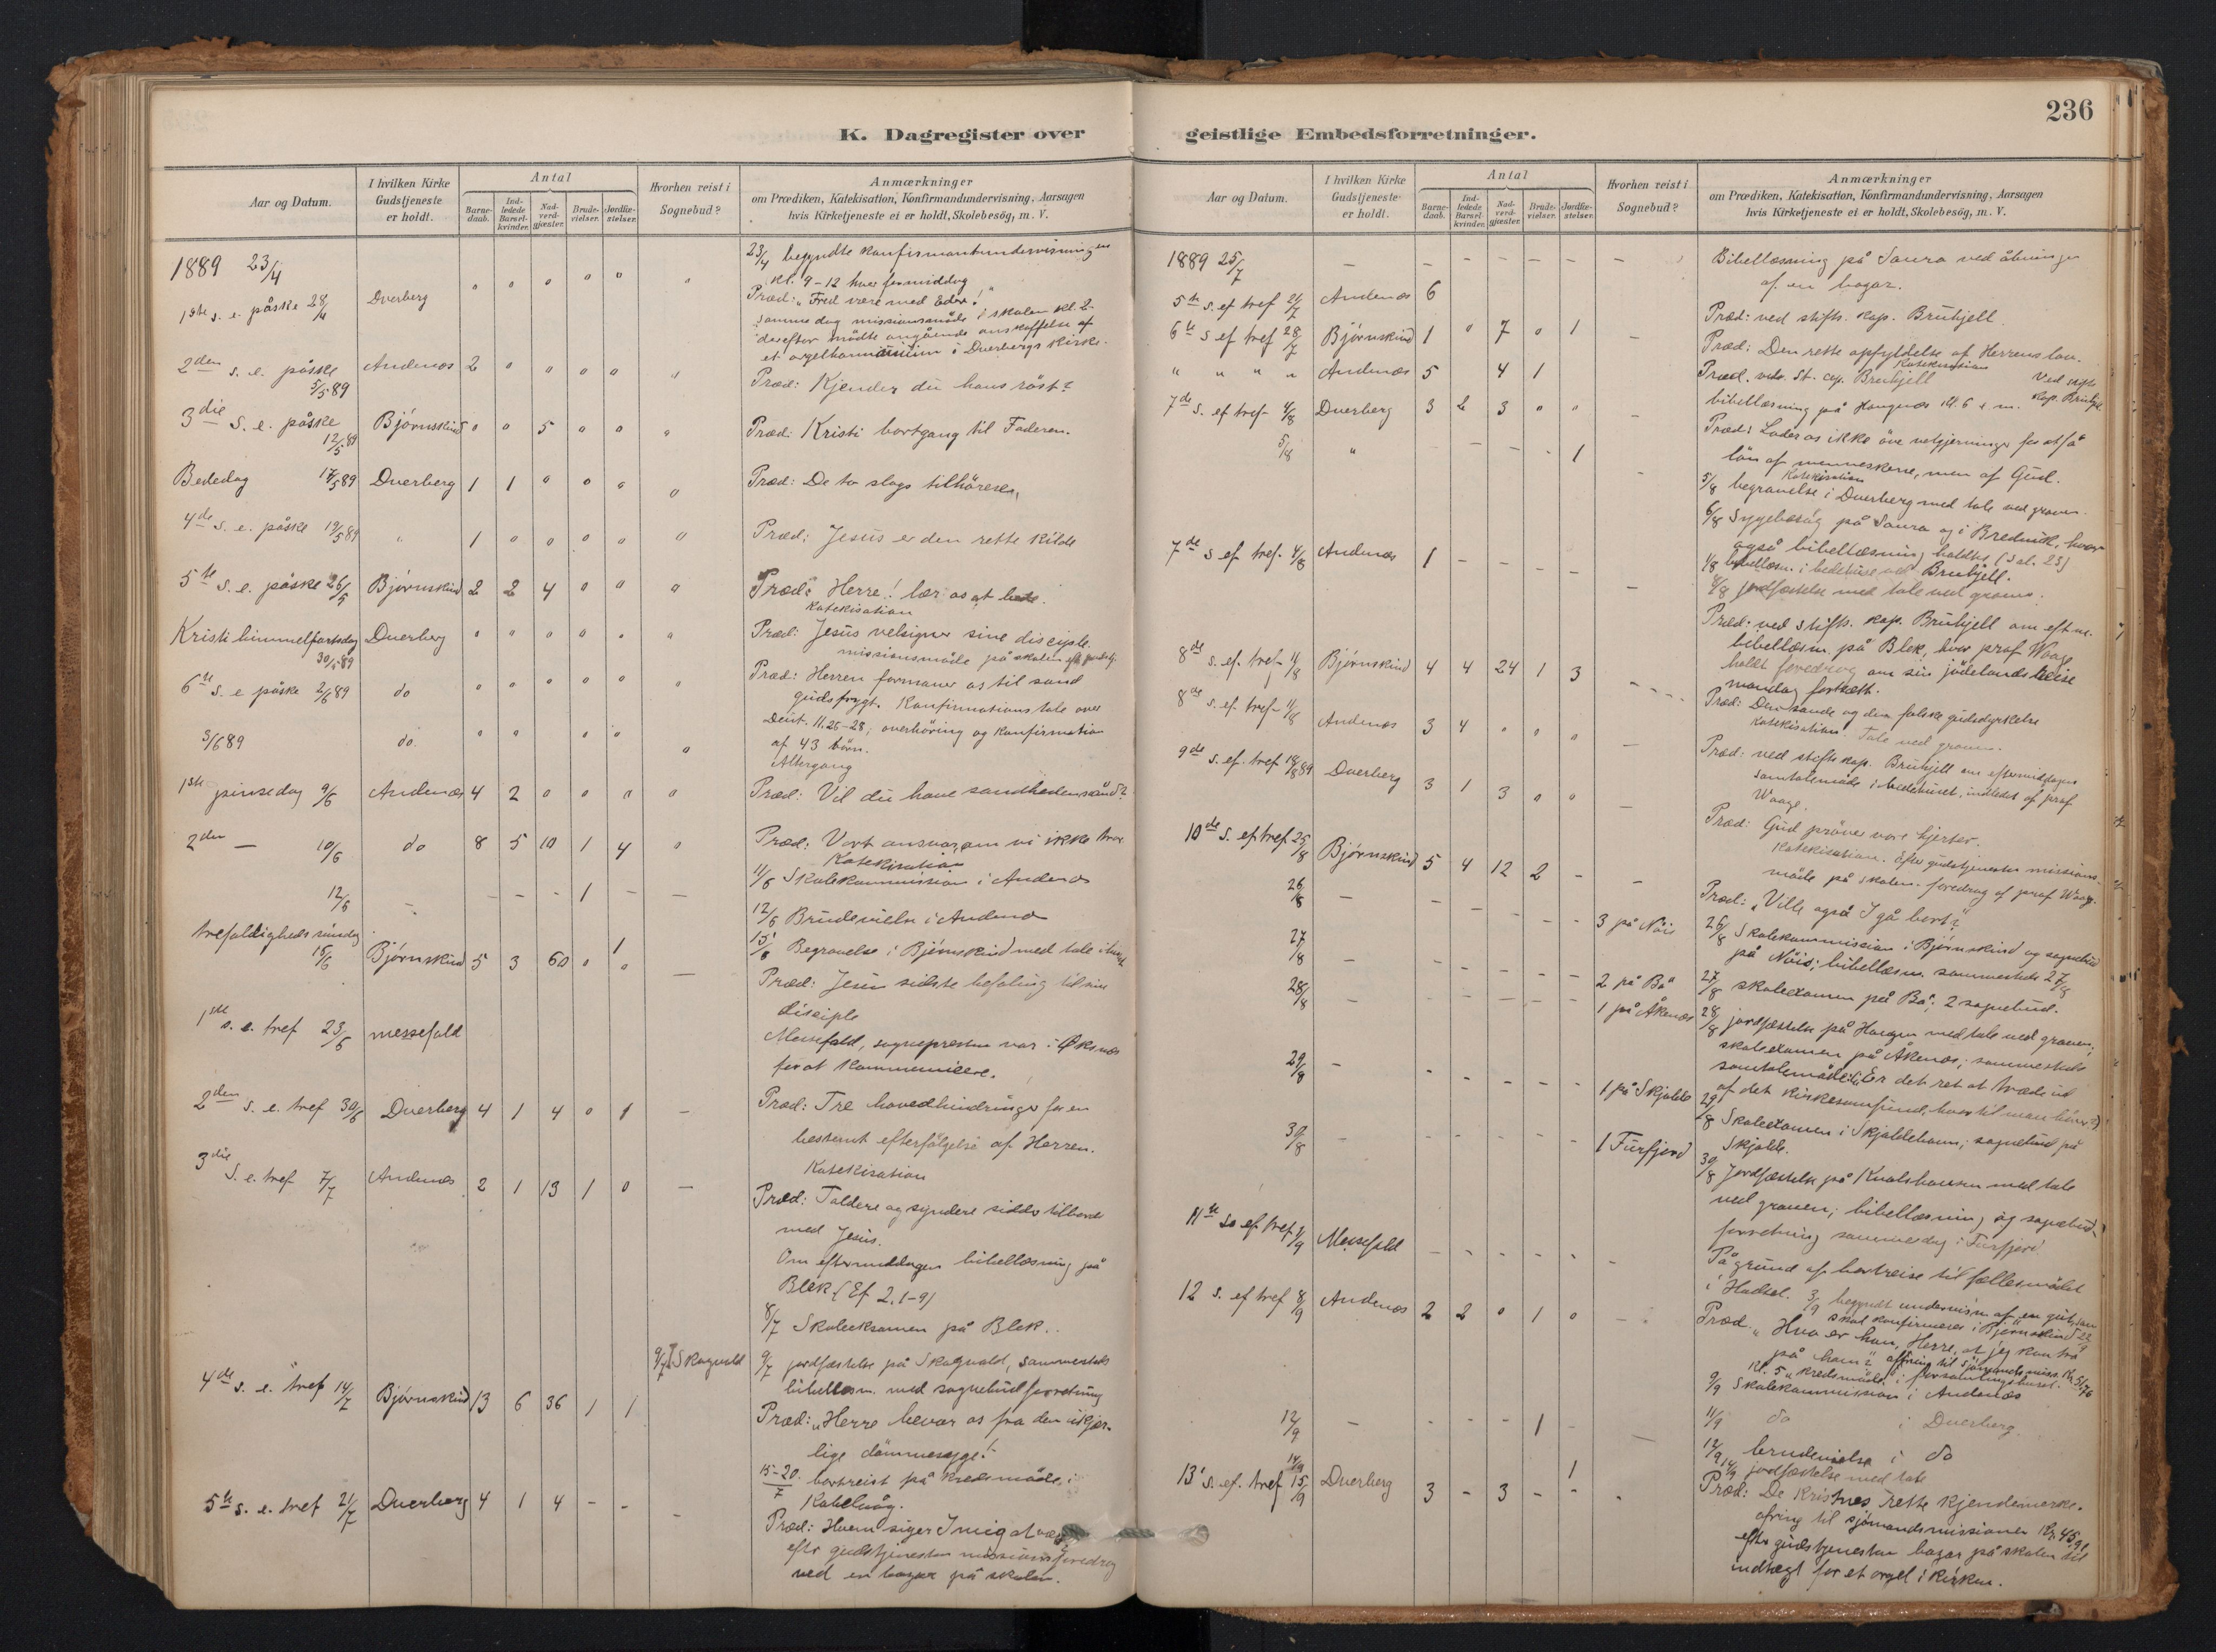 236
K. Dagregister over geistlige Embedsforretninger.
Aar og Datum.
I hvilken Kirke Gudstjeneste er holdt.
Antal
Barne-daab.
Ind-ledede Barsel-kvinder.
Nad-verd-gjæster.
Brude-vielser.
Jordfæ-stelser.
Hvorhen reist i Sognebud?
Anmærkninger
om Prædiken, Katekisation, Konfirmandundervisning, Aarsagen
hvis Kirketjeneste ei er holdt, Skolebesög, m. V.
1889 23/4 " " " " " " 23/4 begyndte konfirmantundervisningen
kl. 9-12 hver formiddag
1ste s. e. påske 28/4 Dverberg Præd: "Fred være med Eder!"
samme dag missionsmøde i skolen kl. 2
derefter mödte angående anskaffelse af
et orgelharmonium i Dverbergs kirke.
2den s. e. påske 5/5 89 Andenæs 2 " " " " " Præd: Kjender du hans röst?
3die s. e. påske 12/5 89 Bjørnskind " " 5 " " " Præd: Kristi bortgang til Faderen.
Bededag 17/5 89 Dverberg 1 1 " " " " Præd: De to slags tilhörere.
4de s. e. påske 19/5 89 " 1 " " " " " Præd: Jesus er den rette kilde
5te s. e. påske 26/5 Bjørnskind 2 2 4 " " " Præd: Herre! lær os at bede.
Katekisation
Kristi himmelfartsdag 30/5 89 Dverberg " " " " " " Præd: Jesus velsigner sine disciple.
missionsmøde på skolen
6te s. e påske 2/6 89 do " " " " " " Præd: Herren formaner os til sand
gudsfrygt. Konfirmationstale over
3/6 89 do. " " " " " Deut. 11.26-28; overhöring og konfirmation
af 43 börn.
Altergang
1ste pinsedag 9/6 Andenæs 4 2 0 0 0 0 Præd: Vil du have sandhedens ånd?
2den — 10/6 do 8 5 10 1 4 " Præd: Vort ansvar, om vi ikke tror
Katekisation
11/6 Skolekommission i Andenæs
12/6 - - - - 1 - - 12/6 Brudevielse i Andenæs
trefoldigheds söndag 16/6 Bjørnskind 5 3 60 0 0 1 — 15/6 Begravelse i Bjørnskind med tale
Præd: Jesu sidste befaling til sine
disciple
1ste s. e. tref 23/6 messefald Messefald, sognepresten var i Øksnæs
for at kommunicere.
2den s. e. tref 30/6 Dverberg 4 1 4 0 1 - Præd: Tre hovedhindringer for en
bestemt efterfölgelse af Herren.
Katekisation
3die s. e. tref 7/7 Andenæs 2 1 13 1 0 — Præd: Toldere og syndere sidder tilbords
med Jesus.
Om eftermiddagen bibellæsning på
Blek (Ef 2.1-9)
8/7 Skoleeksamen på Blek.
9/7 Skogvold 9/7 jordfæstelse på Skogvold, sammesteds
bibellæsn. med sognebudforretning
4de s. e. tref 14/7 Bjørnskind 13 6 36 1 1 Præd: "Herre bevar os fra den ukjær-
lige dömmesyge!"
15-20/7 bortreist på kredsmöde i
Kabelvåg.
5te s. e. tref 21/7 Dverberg 4 1 4 - - - Præd: Hvem siger I mig at være
efter gudstjenesten missionsforedrag
ved en bazar på skolen.
1889 25/7 — — — — — — — Bibellæsning på Saura ved åbningen
af en bazar.
5te s. ef tref 21/7 Andenæs 6 Præd: ved stifts. kap. Bruhjell
6te s ef tref 28/7 Bjørnskind 1 " 7 " 1 — Præd: Den rette opfyldelse af Herrens lov.
Katekisation
" " " " Andenæs 5 4 1 Præd. ved St. cap. Bruhjell
bibellæsning på Haugnæs kl. 6 e. m. Ved stifts kap. Bruhjell
7de s. ef tref 4/8 Dverberg 3 2 3 " " — Præd: Lader os ikke öve velgjerninger for at få
lön af menneskene, men af Gud.
Katekisation
5/8 " - - - - 1 - 5/8 begravelse i Dverberg med tale ved graven.
6/8 Sygebesög på Saura og i Bredvik, hvor
også bibellæsning holdtes (Sal. 23)
7de s ef tref. 4/8 Andenæs 1 - - - - — bibellæsn. i bedehuset ved Bruhjell.
8/8 jordfæstelse med tale ved graven.
Præd: ved stifts. kap. Bruhjell om efterm.
bibellæsn. på Blek, hvor prof Waage
holdt foredrag om sin jödelandsreise
mandag fortsatt.
8de s. ef. tref 11/8 Bjørnskind 4 4 24 1 3 - - - Præd: Den sande og den falske gudsdyrkelse
Katekisation. Tale ved graven.
8de s. ef. tref 11/8 Andenæs 3 4 " " " — Præd: ved stifts kap. Bruhjell om eftermiddagen
samtalemöde i bedehuset, indledet af prof
Waage.
9de s. ef. tref 18/8 89 Dverberg 3 1 3 " " — Præd: Gud pröver vore hjerter.
Katekisation. Efter gudstjenesten missions-
möde på skolen. foredrag af prof Waage.
10de s. ef tref 25/8 Bjørnskind 5 4 12 2 - — Præd: "Ville også I gå bort?"
26/8 — - - - - - 3 på Nöis 26/8 Skolekommission i Bjørnskind og sognebud
på Nöis; bibellæsn. sammesteds 27/8
27/8 — - - - - - 2 på Bö 27/8 skoleexamen på Bö; 2 sognebud.
28/8 — - - - - - 1 på Åkenæs 28/8 jordfæstelse på Haugen med tale ved graven;
skoleexamen på Åkenæs; sammesteds
samtalemöde (Er det ret at træde ud
af det kirkesamfund, hvortil man hörer?)
29/8 — - - - - - 1 på Skjolde 29/8 Skoleexamen i Skjoldehavn; sognebud på
Skjolde.
30/8 — - - - - - 1 Furfjord 30/8 Jordfæstelse på Kvalshausen med tale
ved graven; bibellæsning og sognebud-
forretning sammedag i Furfjord
11te s. ef tref 1/9 Messefald - - - - - - På grund af bortreise til fællesmödet
i Hadsel. 3/9 begyndt undervisn. af en gut, som
skal konfirmeres i Bjørnskind 22/9
12 s. ef tref 8/9 Andenæs 2 2 0 1 0 - Præd. "Hvo er han, Herre, at jeg kan tro
på ham?" offring til sjömandsmiss. Kr. 5,76
Kl. 5 kredsmöde i forsamlingshuset.
9/9 Skolekommission i Andenæs
11/9 do i Dverberg.
12/9 — - - - 1 - — 12/9 brudevielse i do
14/9 1 14/9 jordfæstelse med tale
13' s. ef. tref 15/9 Dverberg 3 - 3 - - - Præd: De kristnes rette kjendemerke.
ofring til sjömandsmissionen Kr. 45,91
efter gudstjenesten bazar på skolen til
indtægt for et orgel i kirken.